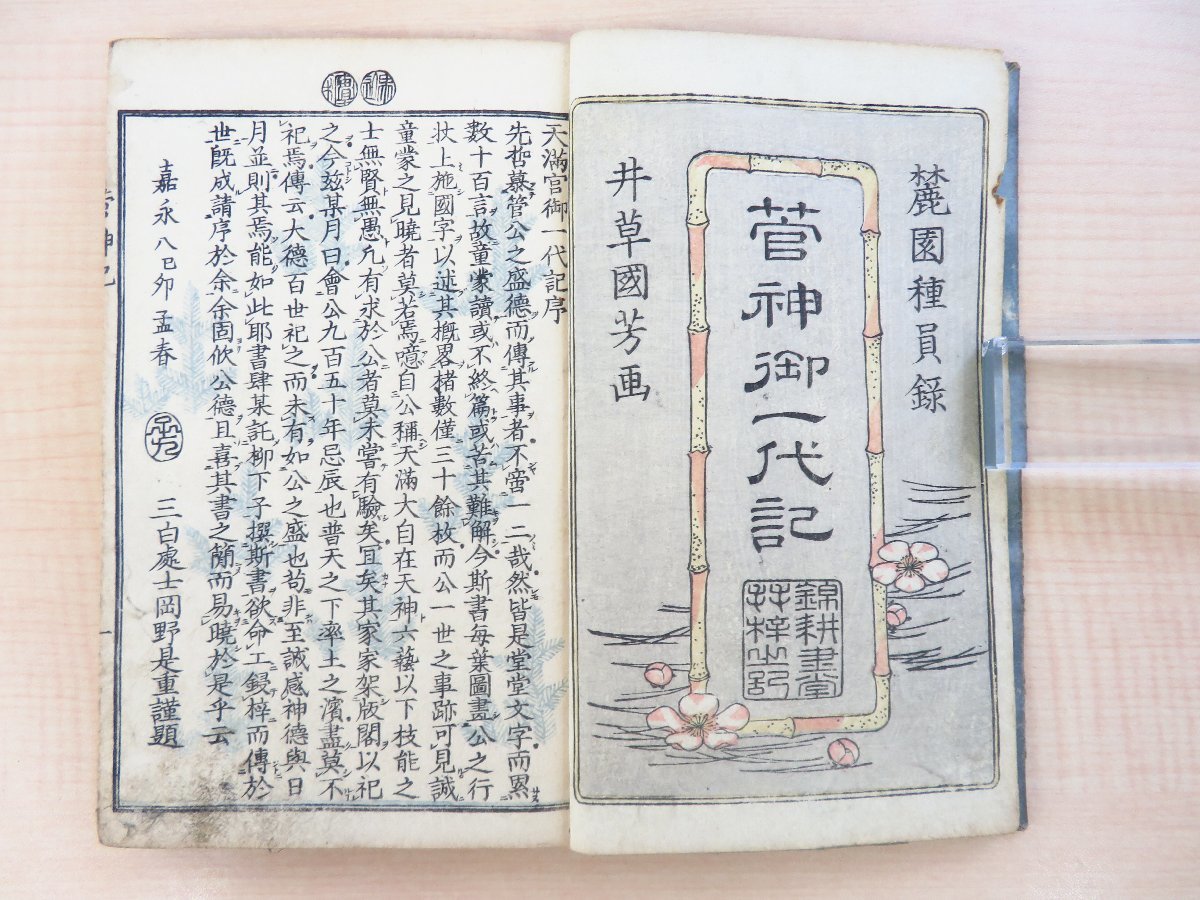 麓園種員録
菅神御一代記
錦耕書堂
井草國芳画
天滿宮御一代記序
先哲慕管公之盛德而傳其事者不啻一二哉然皆是堂堂文字而累
數十百言故童蒙讀或不終篇或苦其難解今斯書每葉圖畫公之行
狀上施國字以述其概畧楮數僅三十餘枚而公一世之事跡可見誠
童蒙之見曉者莫若焉噫自公稱天滿大自在天神六藝以下枝能之
士無賢無愚凡有求於公者莫未嘗有驗矣宜矣其家家架版閣以祀
之今茲某月日會公九百五十年忌辰也普天之下率土之濱盡莫不
祀焉傳云大德百世祀之而未有如公之盛也苟非至誠感神德與日
月並則其焉能如此耶書肆某託柳下子撰斯書欲命工鋟梓而傳於
世既成請序於余余固欽公德且喜其書之簡而易曉於是乎云
嘉永八巳卯孟春
三白處士岡野是重謹題
一